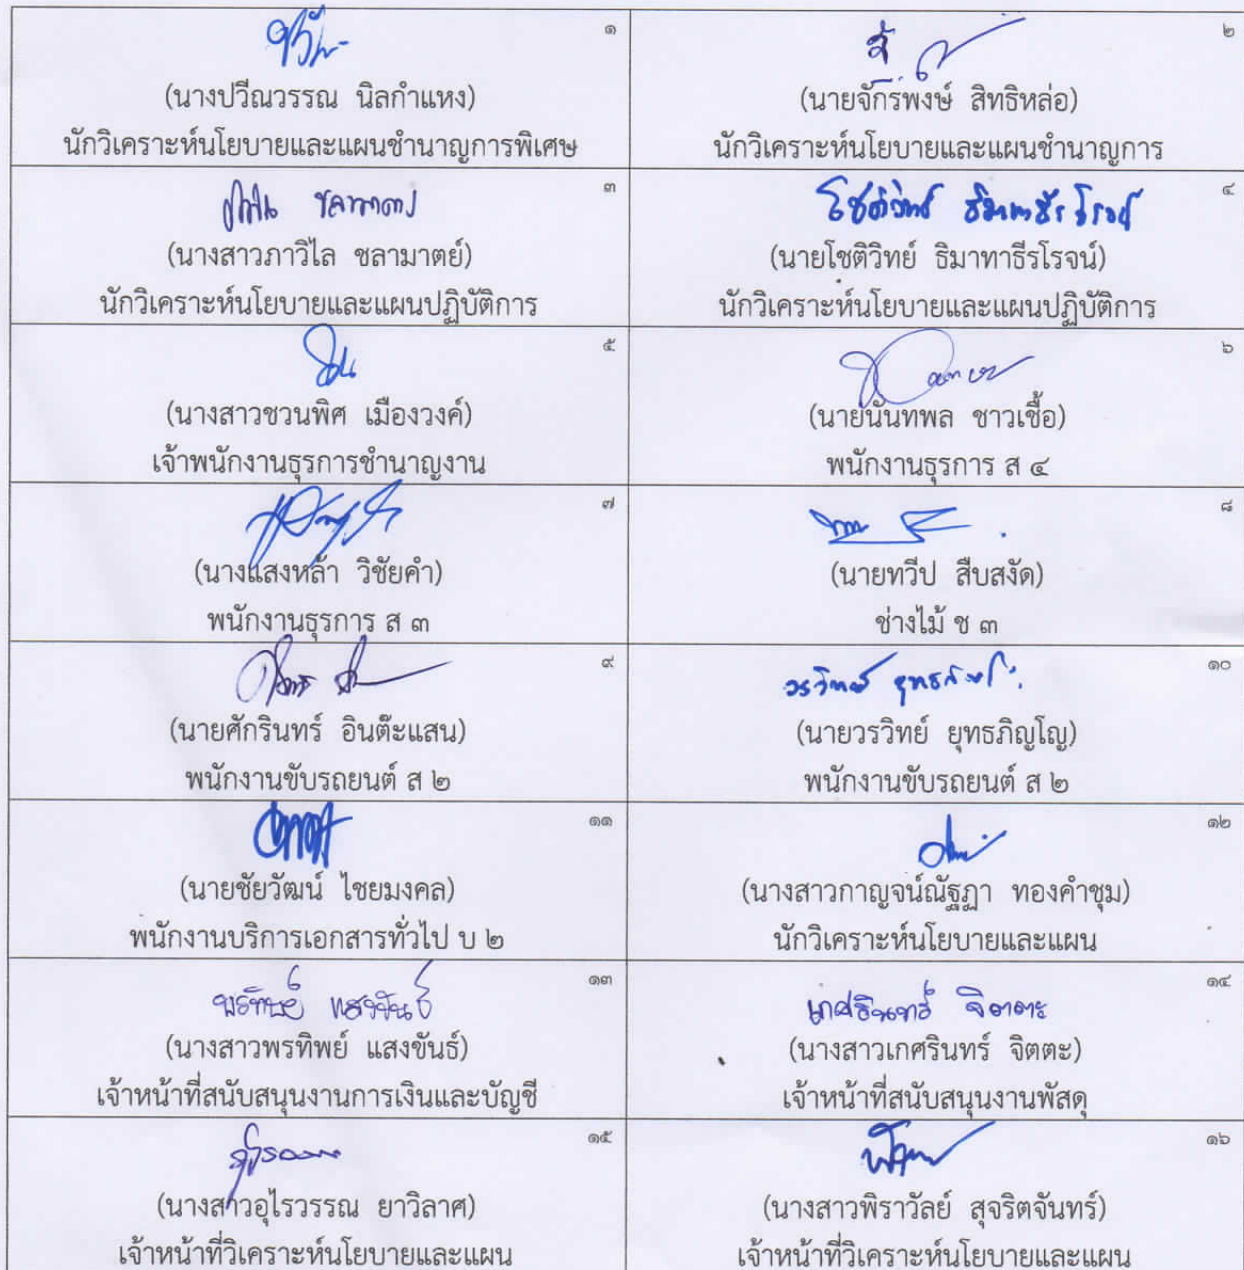 ๑
(นางปวีณวรรณ นิลกำแหง)
นักวิเคราะห์นโยบายและแผนชำนาญการพิเศษ
๒
(นายจักรพงษ์ สิทธิหล่อ)
นักวิเคราะห์นโยบายและแผนชำนาญการ
๓
(นางสาวภาวิไล ชลามาตย์)
นักวิเคราะห์นโยบายและแผนปฏิบัติการ
๔
โชติวิทย์ ธิมาทาธีรโรจน์
(นายโชติวิทย์ ธิมาทาธีรโรจน์)
นักวิเคราะห์นโยบายและแผนปฏิบัติการ
๕
(นางสาวชวนพิศ เมืองวงค์)
เจ้าพนักงานธุรการชำนาญงาน
๖
(นายนันทพล ชาวเชื้อ)
พนักงานธุรการ ส ๔
๗
(นางแสงหล้า วิชัยคำ)
พนักงานธุรการ ส ๓
๘
(นายทวีป สืบสงัด)
ช่างไม้ ช ๓
๙
(นายศักรินทร์ อินต๊ะแสน)
พนักงานขับรถยนต์ ส ๒
๑๐
วรวิทย์
(นายวรวิทย์ ยุทธภิญโญ)
พนักงานขับรถยนต์ ส ๒
๑๑
(นายชัยวัฒน์ ไชยมงคล)
พนักงานบริการเอกสารทั่วไป บ ๒
๑๒
(นางสาวกาญจน์ณัฐฏา ทองคำชุม)
นักวิเคราะห์นโยบายและแผน
๑๓
พรทิพย์ แสงขันธ์
(นางสาวพรทิพย์ แสงขันธ์)
เจ้าหน้าที่สนับสนุนงานการเงินและบัญชี
๑๔
เกศรินทร์ จิตตะ
(นางสาวเกศรินทร์ จิตตะ)
เจ้าหน้าที่สนับสนุนงานพัสดุ
๑๕
(นางสาวอุไรวรรณ ยาวิลาศ)
เจ้าหน้าที่วิเคราะห์นโยบายและแผน
๑๖
(นางสาวพิราวัลย์ สุจริตจันทร์)
เจ้าหน้าที่วิเคราะห์นโยบายและแผน